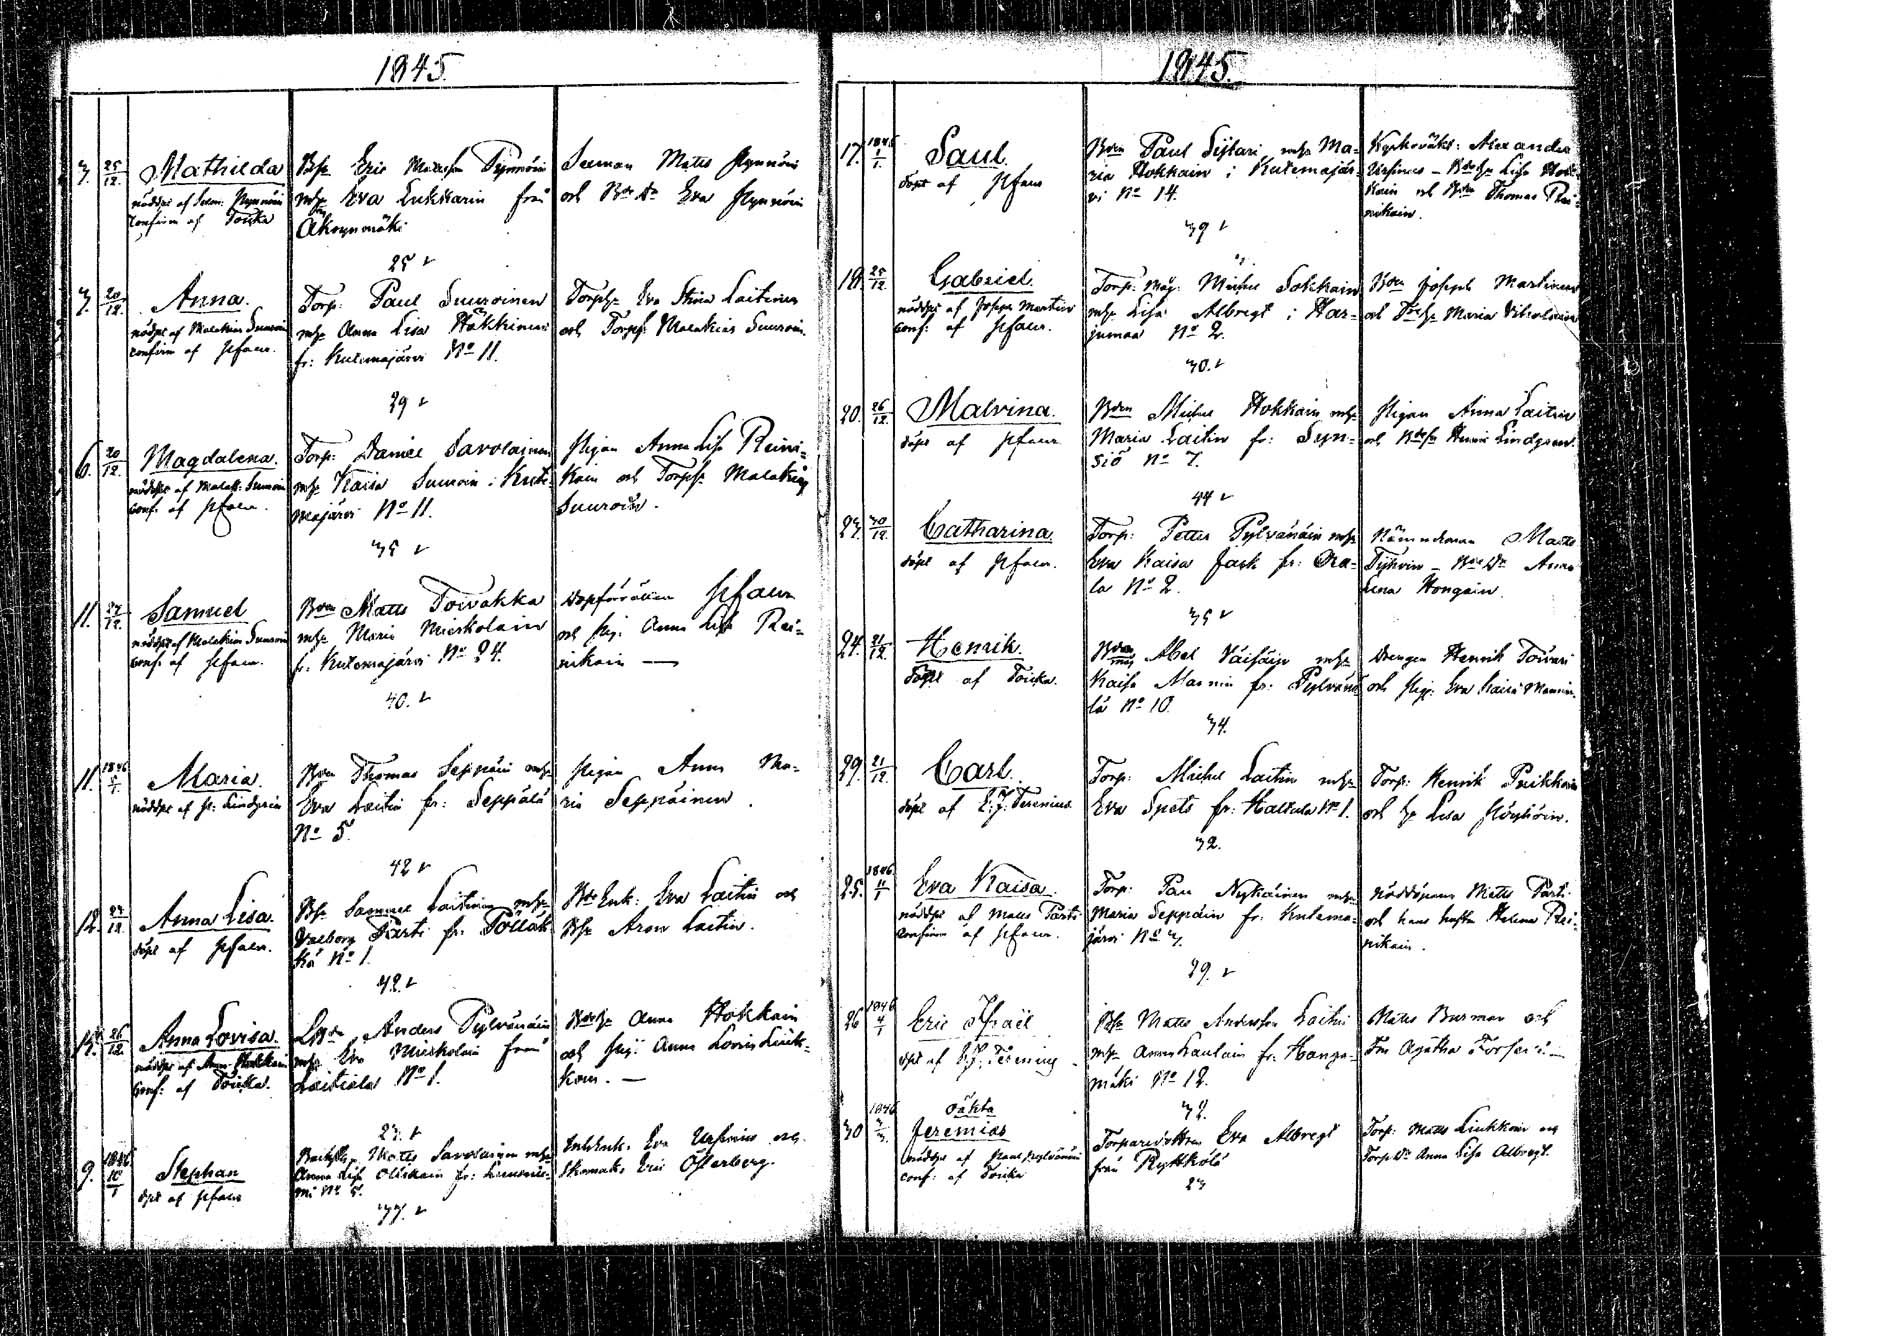 1845.
3. 25/12. Mathilda
nöddpt af Soldn: Pynnöin
confirm af Toicka
Bs. Eric Matsson Pynnöin
mhs Eva Lukkarin från
Akonmäki
25
Seeman Matts Pynnöin
och Bde Dr Eva Pynnöin
3. 20/12. Anna.
nödpt af Malakias Suuroin
confirm af Pfaler.
Torp: Paul Suuroinen
mhs Anna Lisa Häkkinen
fr: Kutemajärvi No 11.
29
Torphs Eva Stina Laitinen
och Torps Malakias Suuroin.
6. 20/12. Magdalena.
nöddpt af Malak: Suuroin
conf: af Pfaler.
Torp: Daniel Savolainen
mhs Kaisa Suuroin i Kute-
majärvi No 11.
35
Pigan Anna Lisa Reini-
kain och Torps Malakias
Suuroin.
11. 27/12. Samuel
nöddpt af Malakias Suuroin
conf: af Pfaler.
Bden Matts Toivakka
mhs Maria Mieskolain
fr: Kutemajärvi No 24.
40.
Dopförrättaren Pfaler
och Pig: Anna Lisa Rei-
nikain —
11. 1846 5/1 Maria.
nöddpt af H: Lindgrén
Bden Thomas Seppäin mhs
Eva Laitin fr: Seppälä
No 5.
42
Pigan Anna Ma-
ria Seppäinen.
12. 27/12. Anna Lisa
döpt af Pfaler.
Bs. Samuel Laitinen mhs
Valborg Parti fr: Pölläk-
kä No 1.
42.
Bde Enk: Eva Laitin och
Bs Aron Laitin.
15. 26/12. Anna Lovisa.
nöddpt af Anna Hokkain
Conf: af Toicka.
Anders Pylvänäin
mhs Eva Mieskolain från
Laitiala No 1.
23.
Bdehs Anna Hokkain
och Pig: Anna Lovisa Liuk-
kon. —
9. 1846 10/1 Stephan
döpt af Pfaler
Matts Savolainen mhs
Anna Lisa Olikain fr:
No 5.
37.
Enk. Eva Ursinus och
Skomak: Eric Österberg.
1845.
17. 1846 1/1. Saul.
döpt af Pfaler
Bden Paul Sijtari mhs Ma-
ria Hokkain i Kutemajär-
vi No 14.
39
Kyrkovakt: Alexander
Ursinus – Bdehs Lisa Hok-
kain och Bden Thomas Rei-
nikain.
18. 25/12. Gabriel
nöddpt af Joseph Martin
conf: af Pfaler.
Torp: Måg: Michel Sokkain
mhs Lisa Albregt i Har-
jumaa No 2.
30.
Bden Joseph Martinen
och Bdehs Maria Vitolain
20. 26/12. Malvina.
döpt af Pfaler
Bden Michel Hokkain mhs
Maria Laitin fr: Syn-
siö No 7.
44
Pigan Anna Laitin
och Bdes Henric Lindgren.
23. 30/12. Catharina
döpt af Pfaler.
Torp: Petter Pylvänäin mhs
Eva Kaisa Jack fr: Ora-
la No 2.
35
Nämndeman Matts
Tijhvin – Bde Dr Anna
Lena Hongain.
24. 31/12. Henrik.
döpt af Toicka.
Bden måg Abel Väisäin mhs
Kaisa Mannin fr: Pylvänä-
lä No 10.
34.
Drengen Henrik Toivari
och Pig: Eva Kaisa Mannin.
29. 31/12. Carl.
döpt af E: J: Terenius
Torp: Michel Laitin mhs
Eva Spets fr: Hallula No 1.
32.
Torp: Henrik Pulkkin
och hs Lisa Pöyhöin.
25. 1846 11/1 Eva Kaisa.
nöddpt af Matts Parti
confirm af Pfaler.
Torp: Paul Nykäinen mhs
Maria Seppäin fr: Kutema-
järvi No 3.
29.
Nöddöparen Matts Parti
och hans hustru Helena Rei-
nikain.
26 1846 4/1 Eric Israël
döpt af E. J. Terenius
Bs. Matts Andersson Laitin
mhs Anna Kaulain fr: Hanga-
mäki No 12.
32.
Matts Burman och
Fru Agatha Forsen —
30 1846 3/3 oäkta
Jeremias
nöddpt af Paul Pylvänäin
conf: af Toicka
Torparedottren Eva Albregt
från Pykkölä
23
Torp: Matts Liukkoin och
Torp Dr Anna Lisa Albregt.